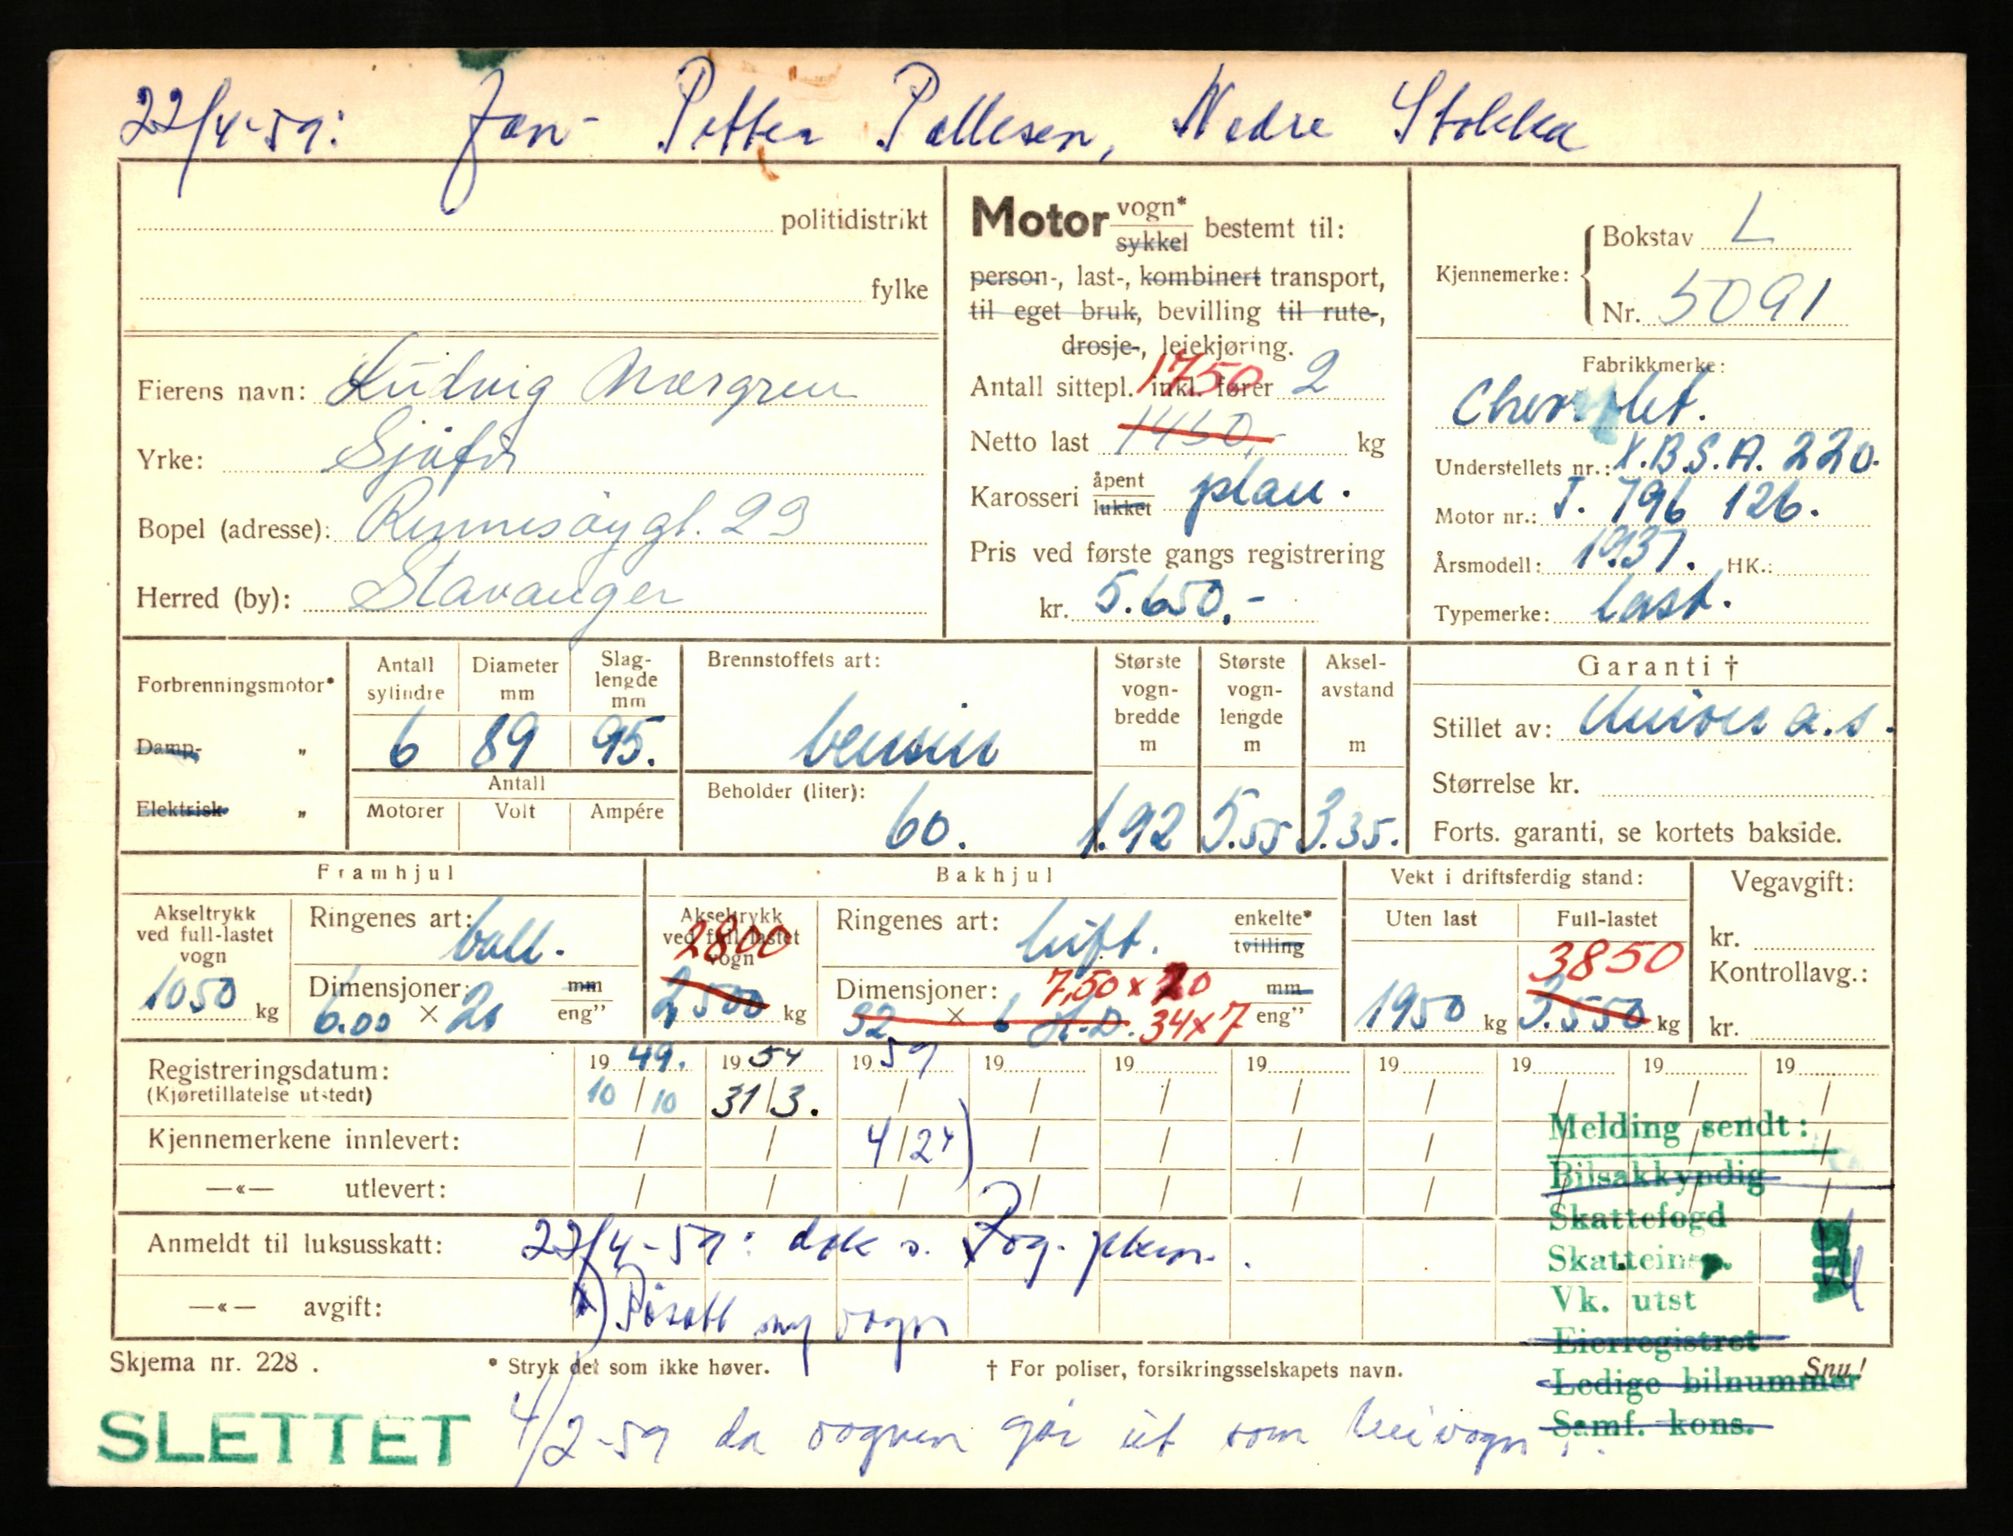 22/4-59: Jan-Petter Pallesen, Nedre Stokka
politidistrikt
fylke
Eierens navn: Ludvig Norgren
Yrke: Sjåfør
Bopel (adresse): Rennesøygt. 29
Herred (by): Stavanger
Motor vogn* sykkel bestemt til:
person-, last-, kombinert transport,
til eget bruk, bevilling til rute-,
drosje-, leiekjøring.
Antall sittepl. inkl. fører 2
1750
Netto last 1450,- kg
Karosseri åpent lukket plan.
Pris ved første gangs registrering
kr. 5.650,-
Kjennemerke: Bokstav L
Nr. 5091
Fabrikkmerke:
Chevrolet.
Understellets nr.: X.B.S.A. 220.
Motor nr.: T. 796 126.
Årsmodell: 1937. HK.:
Typemerke: last.
Forbrenningsmotor*
Damp- „
Elektrisk „
Antall sylindre 6
Diameter mm 89
Slaglengde mm 95.
Antall
Motorer Volt Ampére
Brennstoffets art:
bensin
Beholder (liter):
60.
Største vognbredde m 1.92
Største vognlengde m 5.55
Akselavstand m 3.35.
Garanti †
Stillet av: a.s.
Størrelse kr.
Forts. garanti, se kortets bakside.
Framhjul
Akseltrykk ved full-lastet vogn
1050 kg
Ringenes art: ball.
Dimensjoner: 6.00 × 20 mm eng”
Bakhjul
Akseltrykk ved full-lastet vogn
2800
2,500 kg
Ringenes art: luft. enkelte* tvilling
Dimensjoner: 7,50 x 20 mm
32 × 6 H.D. 34x7 eng”
Vekt i driftsferdig stand:
Uten last Full-lastet
3850
1950 kg 3.550 kg
Vegavgift:
kr.
Kontrollavg.:
kr.
Registreringsdatum: 19 49. 19 54 19 59 19 19 19 19 19 19 19
(Kjøretillatelse utstedt) 10/10 31/3. / / / / / / / /
Kjennemerkene innlevert: / / 4/2 x) / / / / / / /
—«— utlevert: / / / / / / / / / /
Melding sendt:
Bilsakkyndig
Skattefogd
Skatteinsp.
Vk. utst
Eierregistret
Ledige bilnummer
Samf. kons.
Anmeldt til luksusskatt: 22/4-59:
—«— avgift: x) Påsatt ny vogn
Skjema nr. 228. * Stryk det som ikke høver. † For poliser, forsikringsselskapets navn. Snu!
SLETTET 4/2-59 da vognen går ut som leievogn.